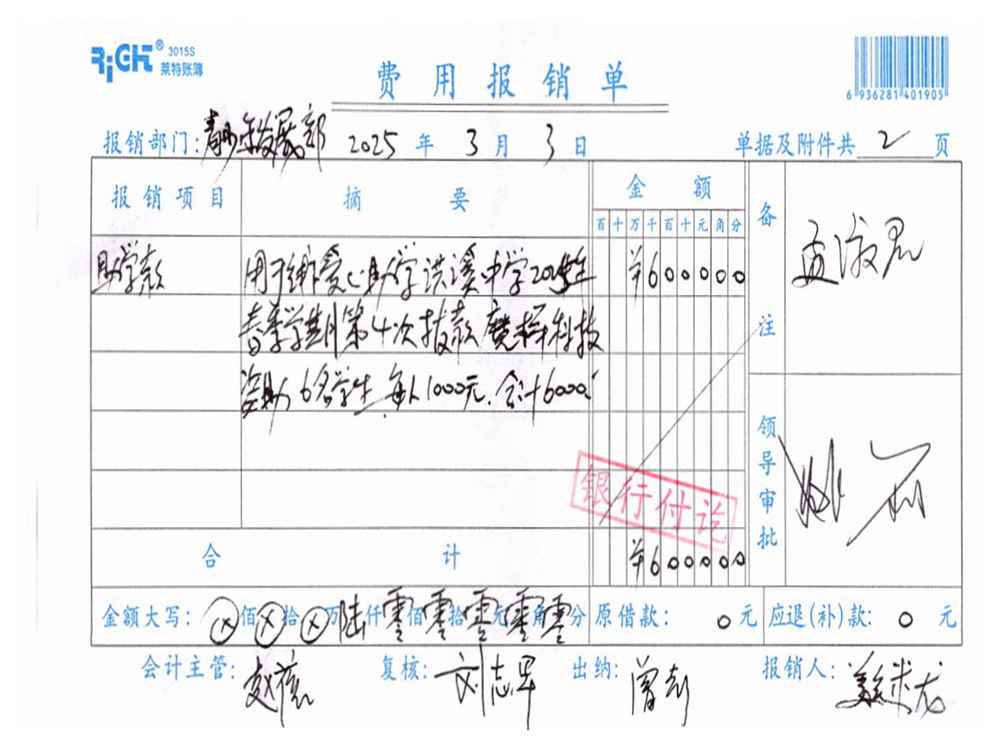 RiCHT® 3015S
莱特账簿
费用报销单
6 936281 401905
报销部门: 青少年发展部 2025 年 3 月 3 日 单据及附件共 2 页
报销项目 摘要 金额 备注
百 十 万 千 百 十 元 角 分
助学款 爱心助学洪溪中学 ¥600000
春季学期第4次拨款 科技
资助6名学生 每人1000元.合计6000.
领导审批
银行付讫
合计 ¥600000
金额大写: ⊗ 佰 ⊗ 拾 ⊗ 万 陆 仟 零 佰 零 拾 零 元 零 角 零 分 原借款: 0 元 应退(补)款: 0 元
会计主管: 复核: 刘志军 出纳: 曾彭 报销人: